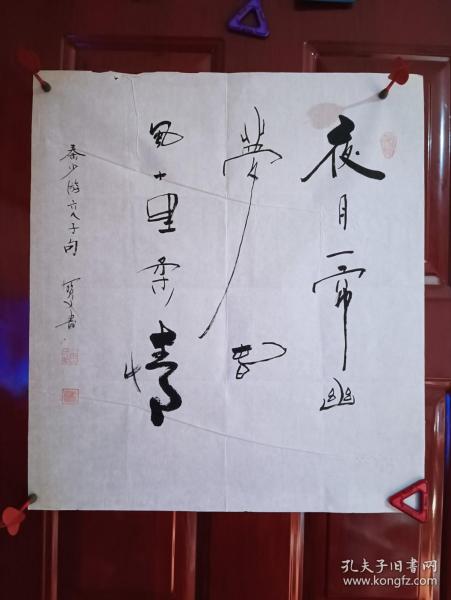 夜月一帘幽
夢春
風十里柔情
秦少游六八子句 書
孔夫子旧书网
www.kongfz.com